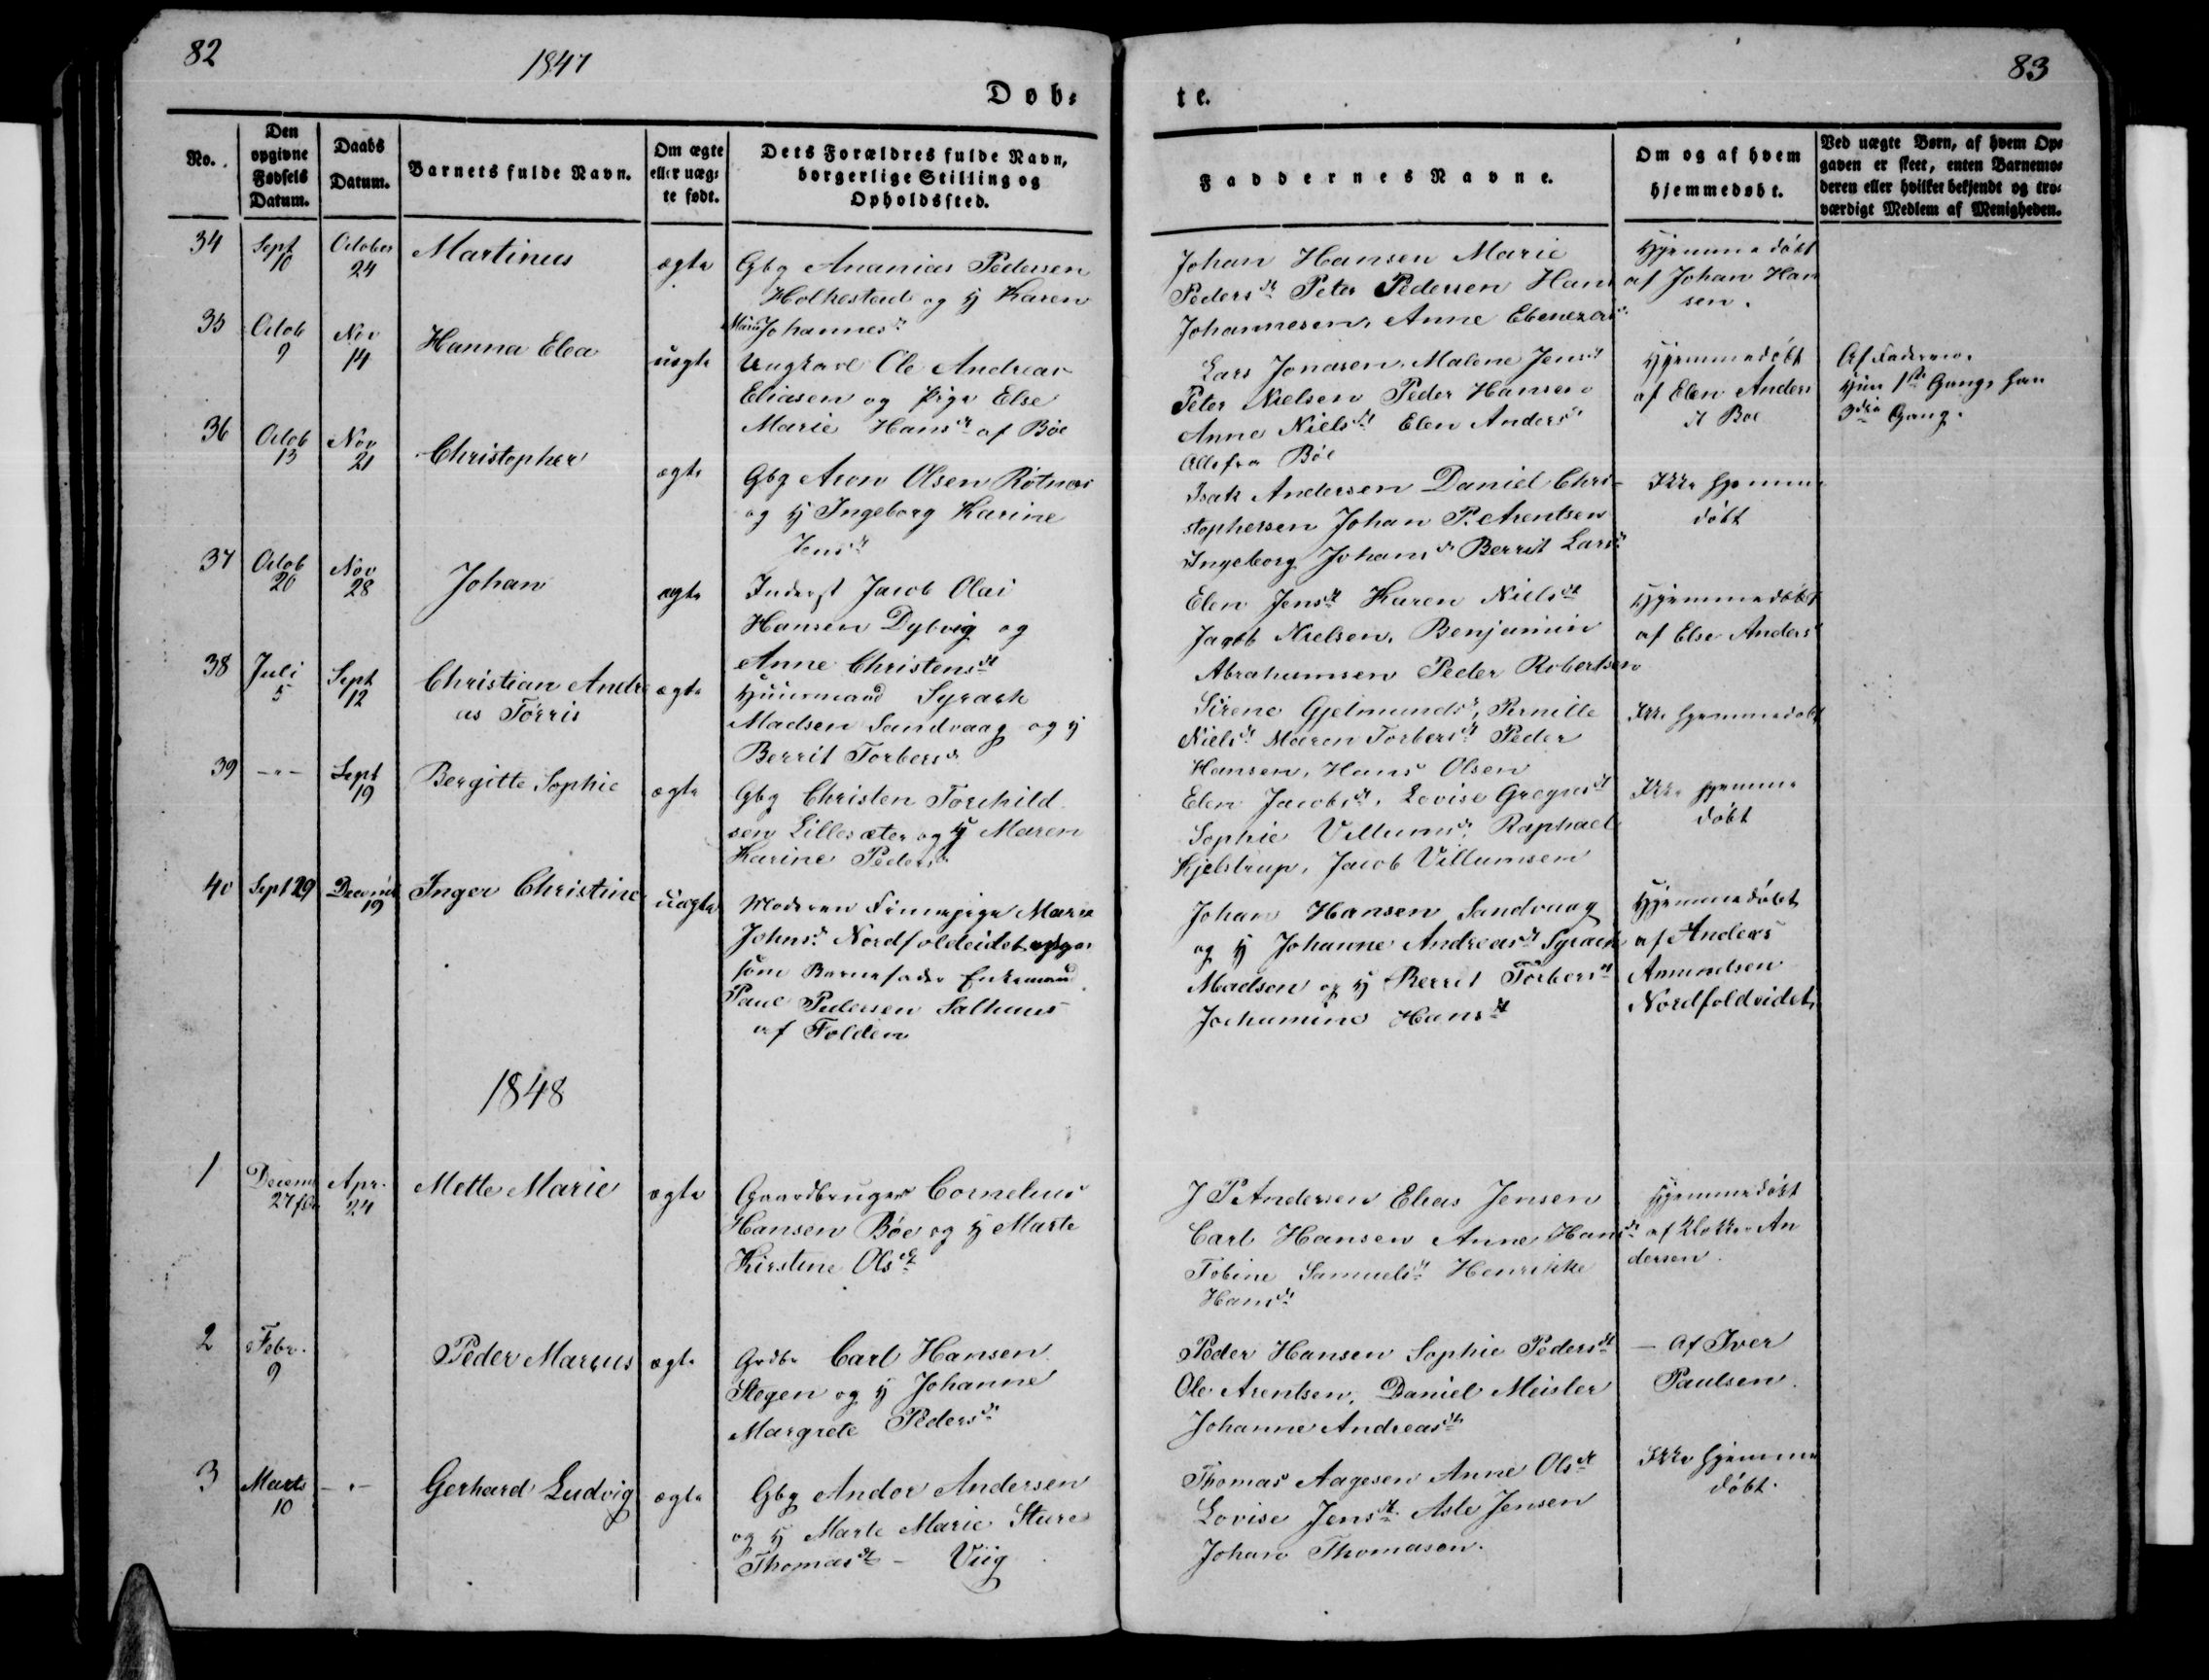 82
1847
Døb=
te.
83
No.
Den
opgivne
Fødsels
Datum.
Daabs
Datum.
Barnets fulde Navn.
Om ægte
eller uæg=
te født.
Dets Forældres fulde Navn,
borgerlige Stilling og
Opholdssted.
Faddernes Navne.
Om og af hvem
hjemmedøbt.
Ved uægte Børn, af hvem Op=
gaven er skeet, enten Barnemo=
deren eller hvilket bekjendt og tro=
værdigt Medlem af Menigheden.
34
Sept
10
October
24
Martinus
ægte
Gbg Ananias Pedersen
Holkestad og H Karen
Maria Johannesdt
Johan Hansen Marie
Pedersdt Peter Pedersen Hans
Johannesen, Anne Ebenezersdt
Hjemmedøbt
af Johan Han
sen.
35
Octob
9
Nov
14
Hanna Elea
uegte
Ungkarl Ole Andreas
Eliasen og Pige Else
Marie Hansdt af Böe
Lars Jonasen, Malene Jensdt
Peter Nielsen Peder Hansen
Anne Nielsdt Elen Andersdt
Alle fra Böe
Hjemmedöbt
af Elen Anders
dt Boe
Af Faderen.
Hun 1ste Gang, han
3die Gang.
36
Octob
13
Nov
21
Christopher
ægte
Gbg Aron Olsen Rötnæs
og H Ingeborg Karine
Jensdt
Isak Andersen Daniel Chri-
stophersen Johan P. Arentsen
Ingeborg Johansdt Berrit Larsdt
Ikke hjemme
döbt
37
Octob
20
Nov
28
Johan
ægte
Inderst Jacob Olai
Hansen Dybvig og
Anne Christensdt
Elen Jensdt Karen Nielsdt
Jacob Nielsen, Benjamin
Abrahamsen Peder Robertsen
Hjemmedöbt
af Else Andersdt
38
Juli
5
Sept
12
Christian Andre
as Törris
ægte
Huusmand Syrach
Madsen Sandvaag og H
Berrit Torbersdt
Sirene Gjelmundsdt, Pernille
Nielsdt Maren Torbersdt Peder
Hansen, Hans Olsen
Ikke hjemmedöbt
39
-"-
Sept
19
Bergitte Sophie
ægte
Gbg Christen Torchild
sen Lillesæter og H Maren
Karine Pedersdt
Elen Jacobsdt, Lovise Gregusdt
Sophie Villumsdt Raphael
Kjelstrup, Jacob Villumsen
Ikke hjemme
döbt
40
Sept 29
Decemb
19
Inger Christine
uægte
Moderen Finnepige Maria
Johnsdt Nordfoldeidet opgav
som Barnefader Enkemand
Paul Pedersen Salhuus
af Folden
Johan Hansen Sandvaag
og H Johanne Andreasdt Syrach
Madsen og H Berrit Torbersdt
Jochumine Hansdt
Hjemmedöbt
af Anders
Amundsen
Nordfoldeidet
1848
1
Decemb
27
Apr.
24
Mette Marie
ægte
Gaardbruger Cornelius
Hansen Böe og H Marte
Kirstine Olsdt
J P Andersen Elias Jensen
Carl Hansen Anne Hansdt
Tobine Samuelsdt Henrikke
Hansdt
Hjemmedöbt
af Klokker An
dersen.
2
Febr.
9
Peder Marcus
ægte
Grdbr Carl Hansen
Stegen og H Johanne
Margrete Pedersdt
Peder Hansen Sophie Pedersdt
Ole Arentsen, Daniel Meisler
Johanne Andreasdt
- af Iver
Paulsen.
3
Marts
10
-"-
Gerhard Ludvig
ægte
Gbg Andor Andersen
og H Marte Marie Sture
Thomasdt - Viig
Thomas Aagesen Anne Olsdt
Lovise Jensdt Asle Jensen
Johan Thomasen.
Ikke hjemme
döbt.